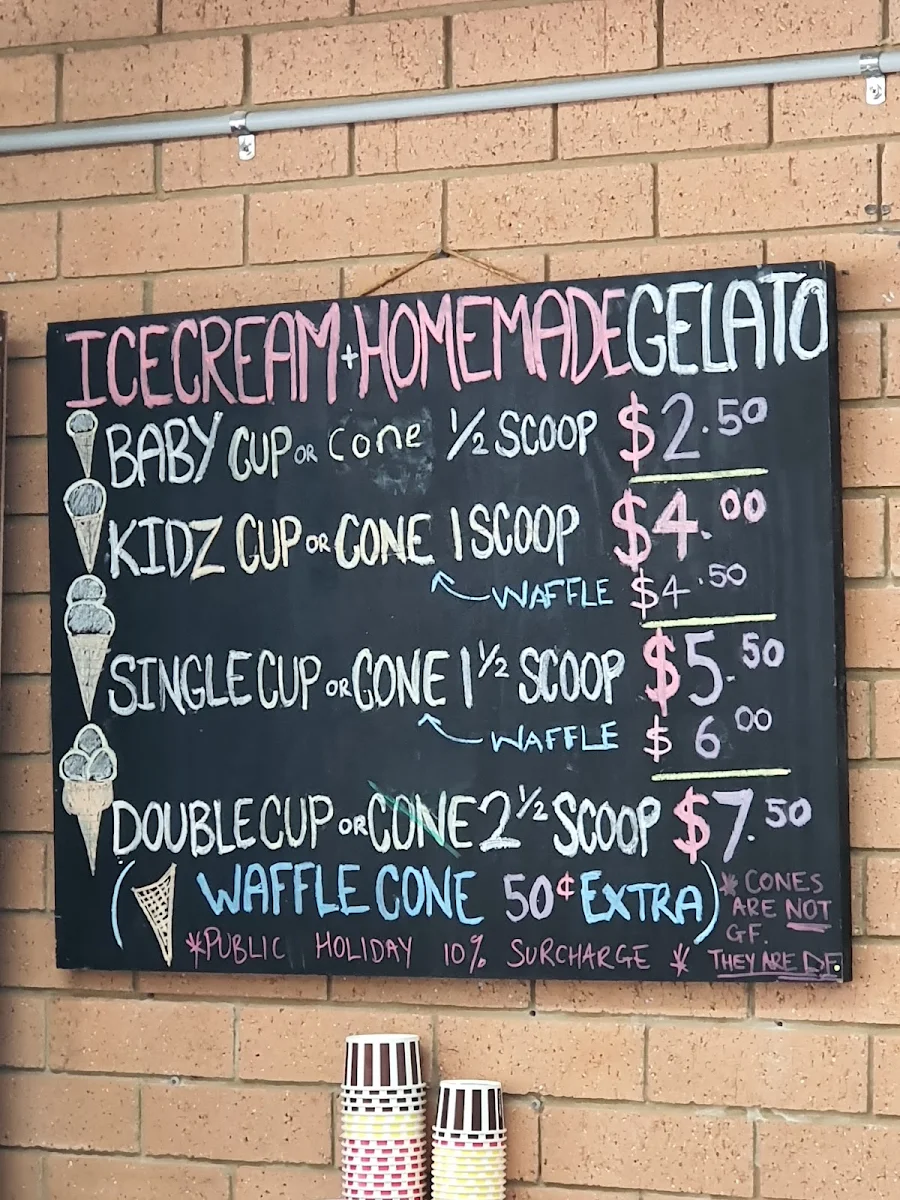 ICECREAM + HOMEMADE GELATO
BABY CUP OR cone 1/2 SCOOP $2.50
KIDZ CUP OR CONE 1 SCOOP $4.00
WAFFLE $4.50
SINGLE CUP OR CONE 1 1/2 SCOOP $5.50
WAFFLE $6.00
DOUBLE CUP OR CONE 2 1/2 SCOOP $7.50
(WAFFLE CONE 50¢ EXTRA)
*PUBLIC HOLIDAY 10% SURCHARGE *
* CONES
ARE NOT
GF.
THEY ARE DF